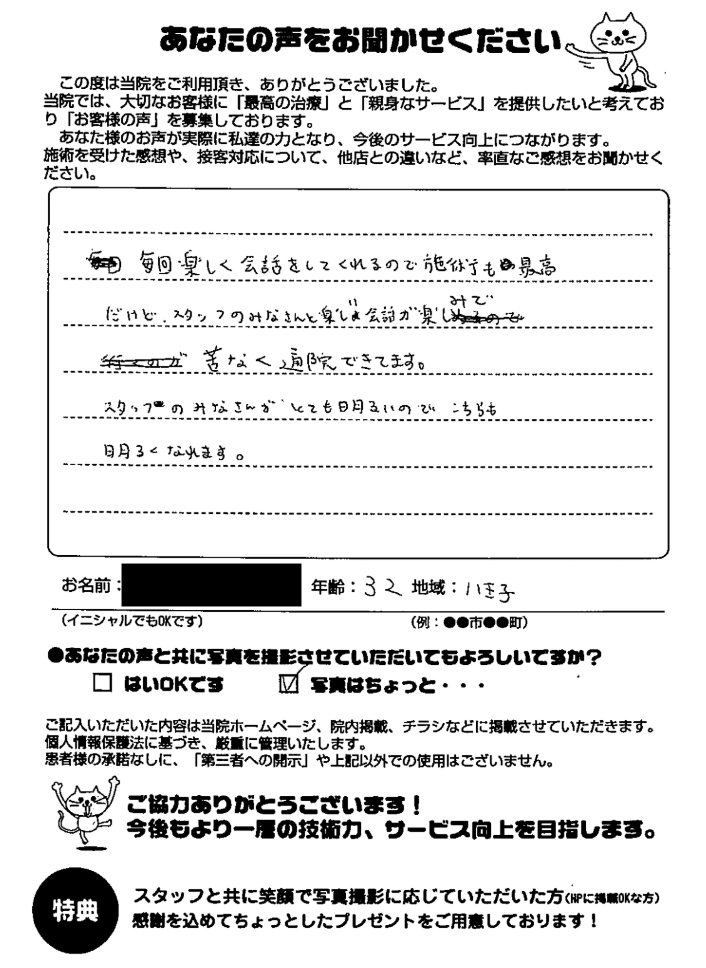 あなたの声をお聞かせください
この度は当院をご利用頂き、ありがとうございました。
当院では、大切なお客様に「最高の治療」と「親身なサービス」を提供したいと考えてお
り「お客様の声」を募集しております。
あなた様のお声が実際に私達の力となり、今後のサービス向上につながります。
施術を受けた感想や、接客対応について、他店との違いなど、率直なご感想をお聞かせく
ださい。
毎回楽しく会話をしてくれるので施術も最高
だけど、スタッフのみなさんと楽しい会話が楽しみで
苦なく通院できてます。
スタッフのみなさんがとても明るいので こちらも
明るくなれます。
お名前： 年齢：32 地域：八王子
（イニシャルでもOKです） （例：●●市●●町）
●あなたの声と共に写真を撮影させていただいてもよろしいですか？
□ はいOKです ☑ 写真はちょっと・・・
ご記入いただいた内容は当院ホームページ、院内掲載、チラシなどに掲載させていただきます。
個人情報保護法に基づき、厳重に管理いたします。
患者様の承諾なしに、「第三者への開示」や上記以外での使用はございません。
ご協力ありがとうございます！
今後もより一層の技術力、サービス向上を目指します。
特典
スタッフと共に笑顔で写真撮影に応じていただいた方（HPに掲載OKな方）
感謝を込めてちょっとしたプレゼントをご用意しております！